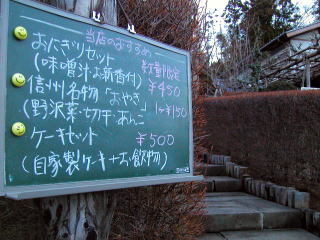 当店のおすすめ
おにぎりセット 数量限定
(味噌汁お新香付) ¥450
信州名物「おやき」
(野沢菜・切干・あんこ 1ヶ¥150
ケーキセット ¥500
(自家製ケーキ+お飲物)